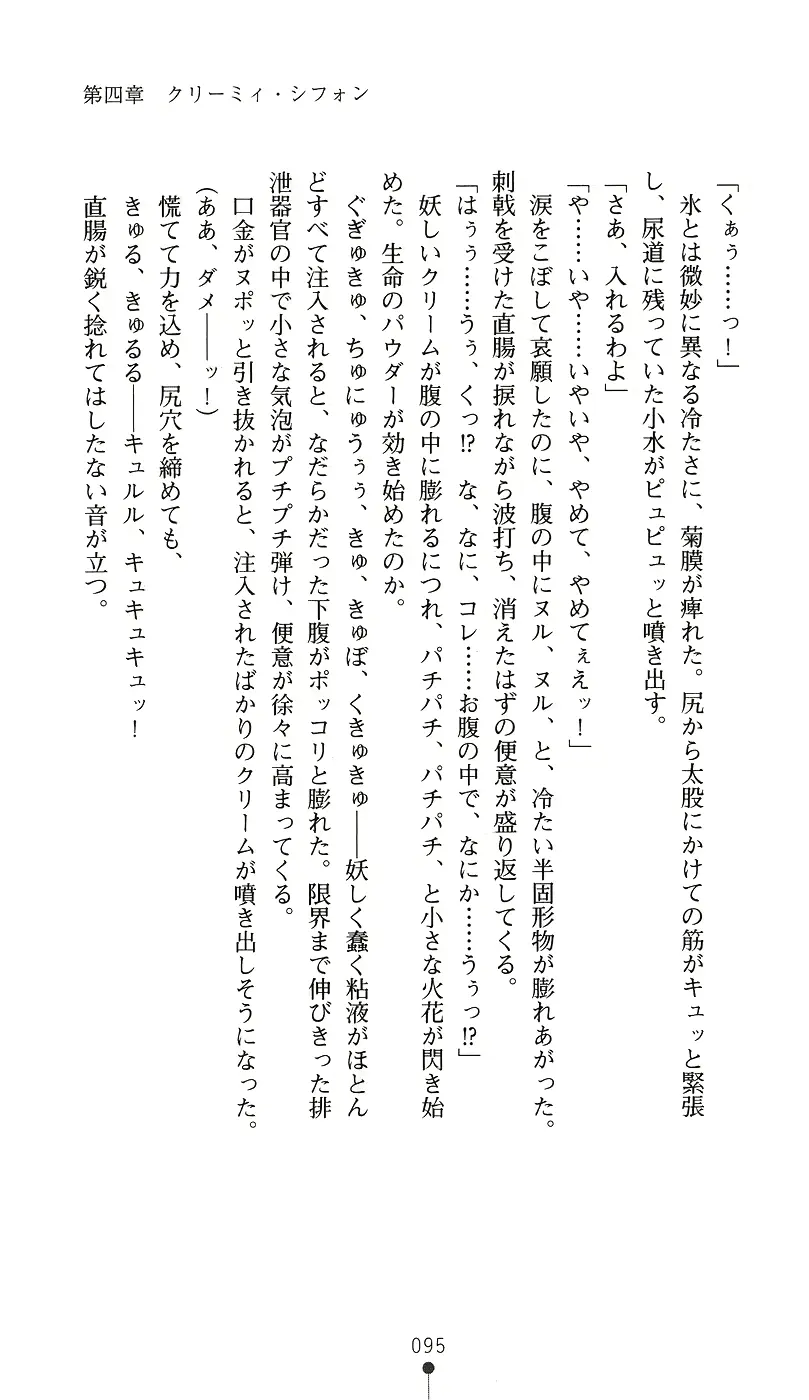 第四章　クリーミィ・シフォン
「くぁぅ……っ！」
　氷とは微妙に異なる冷たさに、菊膜が痺れた。尻から太股にかけての筋がキュッと緊張
し、尿道に残っていた小水がピュピュッと噴き出す。
「さあ、入れるわよ」
「や……いや……いやいや、やめて、やめてぇえッ！」
　涙をこぼして哀願したのに、腹の中にヌル、ヌル、と、冷たい半固形物が膨れあがった。
刺戟を受けた直腸が捩れながら波打ち、消えたはずの便意が盛り返してくる。
「はぅぅ……うぅ、くっ!?　な、なに、コレ……お腹の中で、なにか……うぅっ!?」
　妖しいクリームが腹の中に膨れるにつれ、パチパチ、パチパチ、と小さな火花が閃き始
めた。生命のパウダーが効き始めたのか。
　ぐぎゅきゅ、ちゅにゅうぅぅ、きゅ、きゅぼ、くきゅきゅ――妖しく蠢く粘液がほとん
どすべて注入されると、なだらかだった下腹がポッコリと膨れた。限界まで伸びきった排
泄器官の中で小さな気泡がプチプチ弾け、便意が徐々に高まってくる。
　口金がヌポッと引き抜かれると、注入されたばかりのクリームが噴き出しそうになった。
（ああ、ダメ――ッ！）
　慌てて力を込め、尻穴を締めても、
　きゅる、きゅるる――キュルル、キュキュキュッ！
　直腸が鋭く捻れてはしたない音が立つ。
095